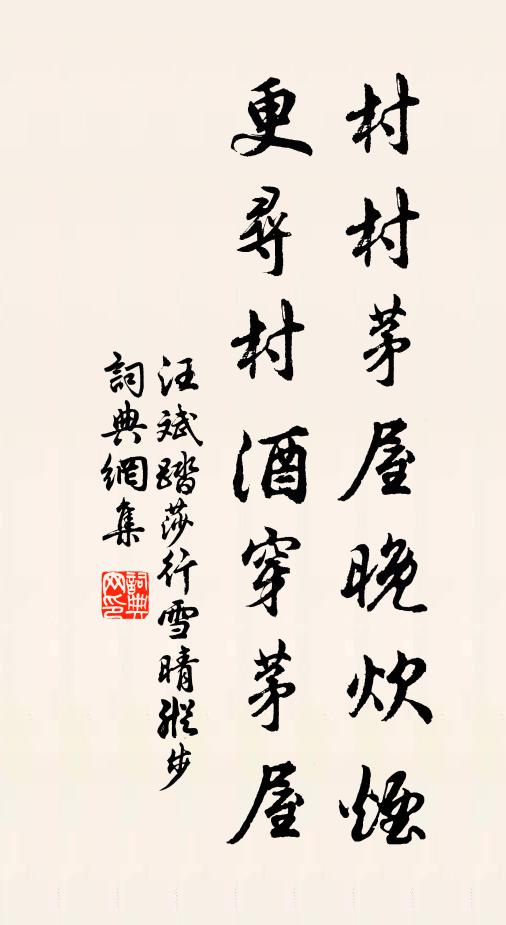 村村茅屋晚炊煙
更尋村酒穿茅屋
汪斌踏莎行雪晴縱步
詞典網集
詞典网印